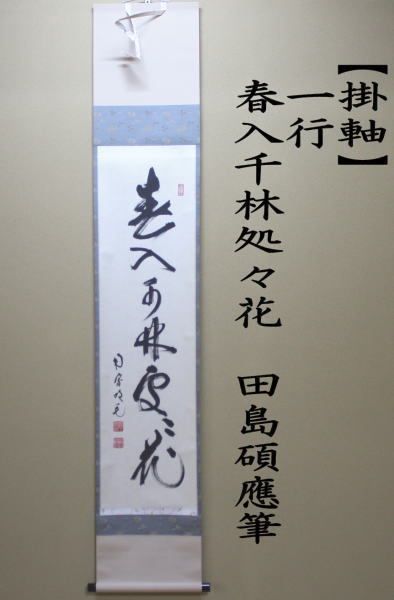 【掛軸】
一行
春入千林処々花 田島碩應筆
春入千林處々花